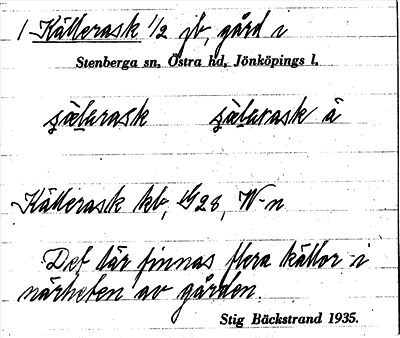 1 Källerask 1/2 jb, gård i
Stenberga sn, Östra hd, Jönköpings l.
Källerask kb, 28, W-n
Det lär finnas flera källor i
närheten av gården.
Stig Bäckstrand 1935.